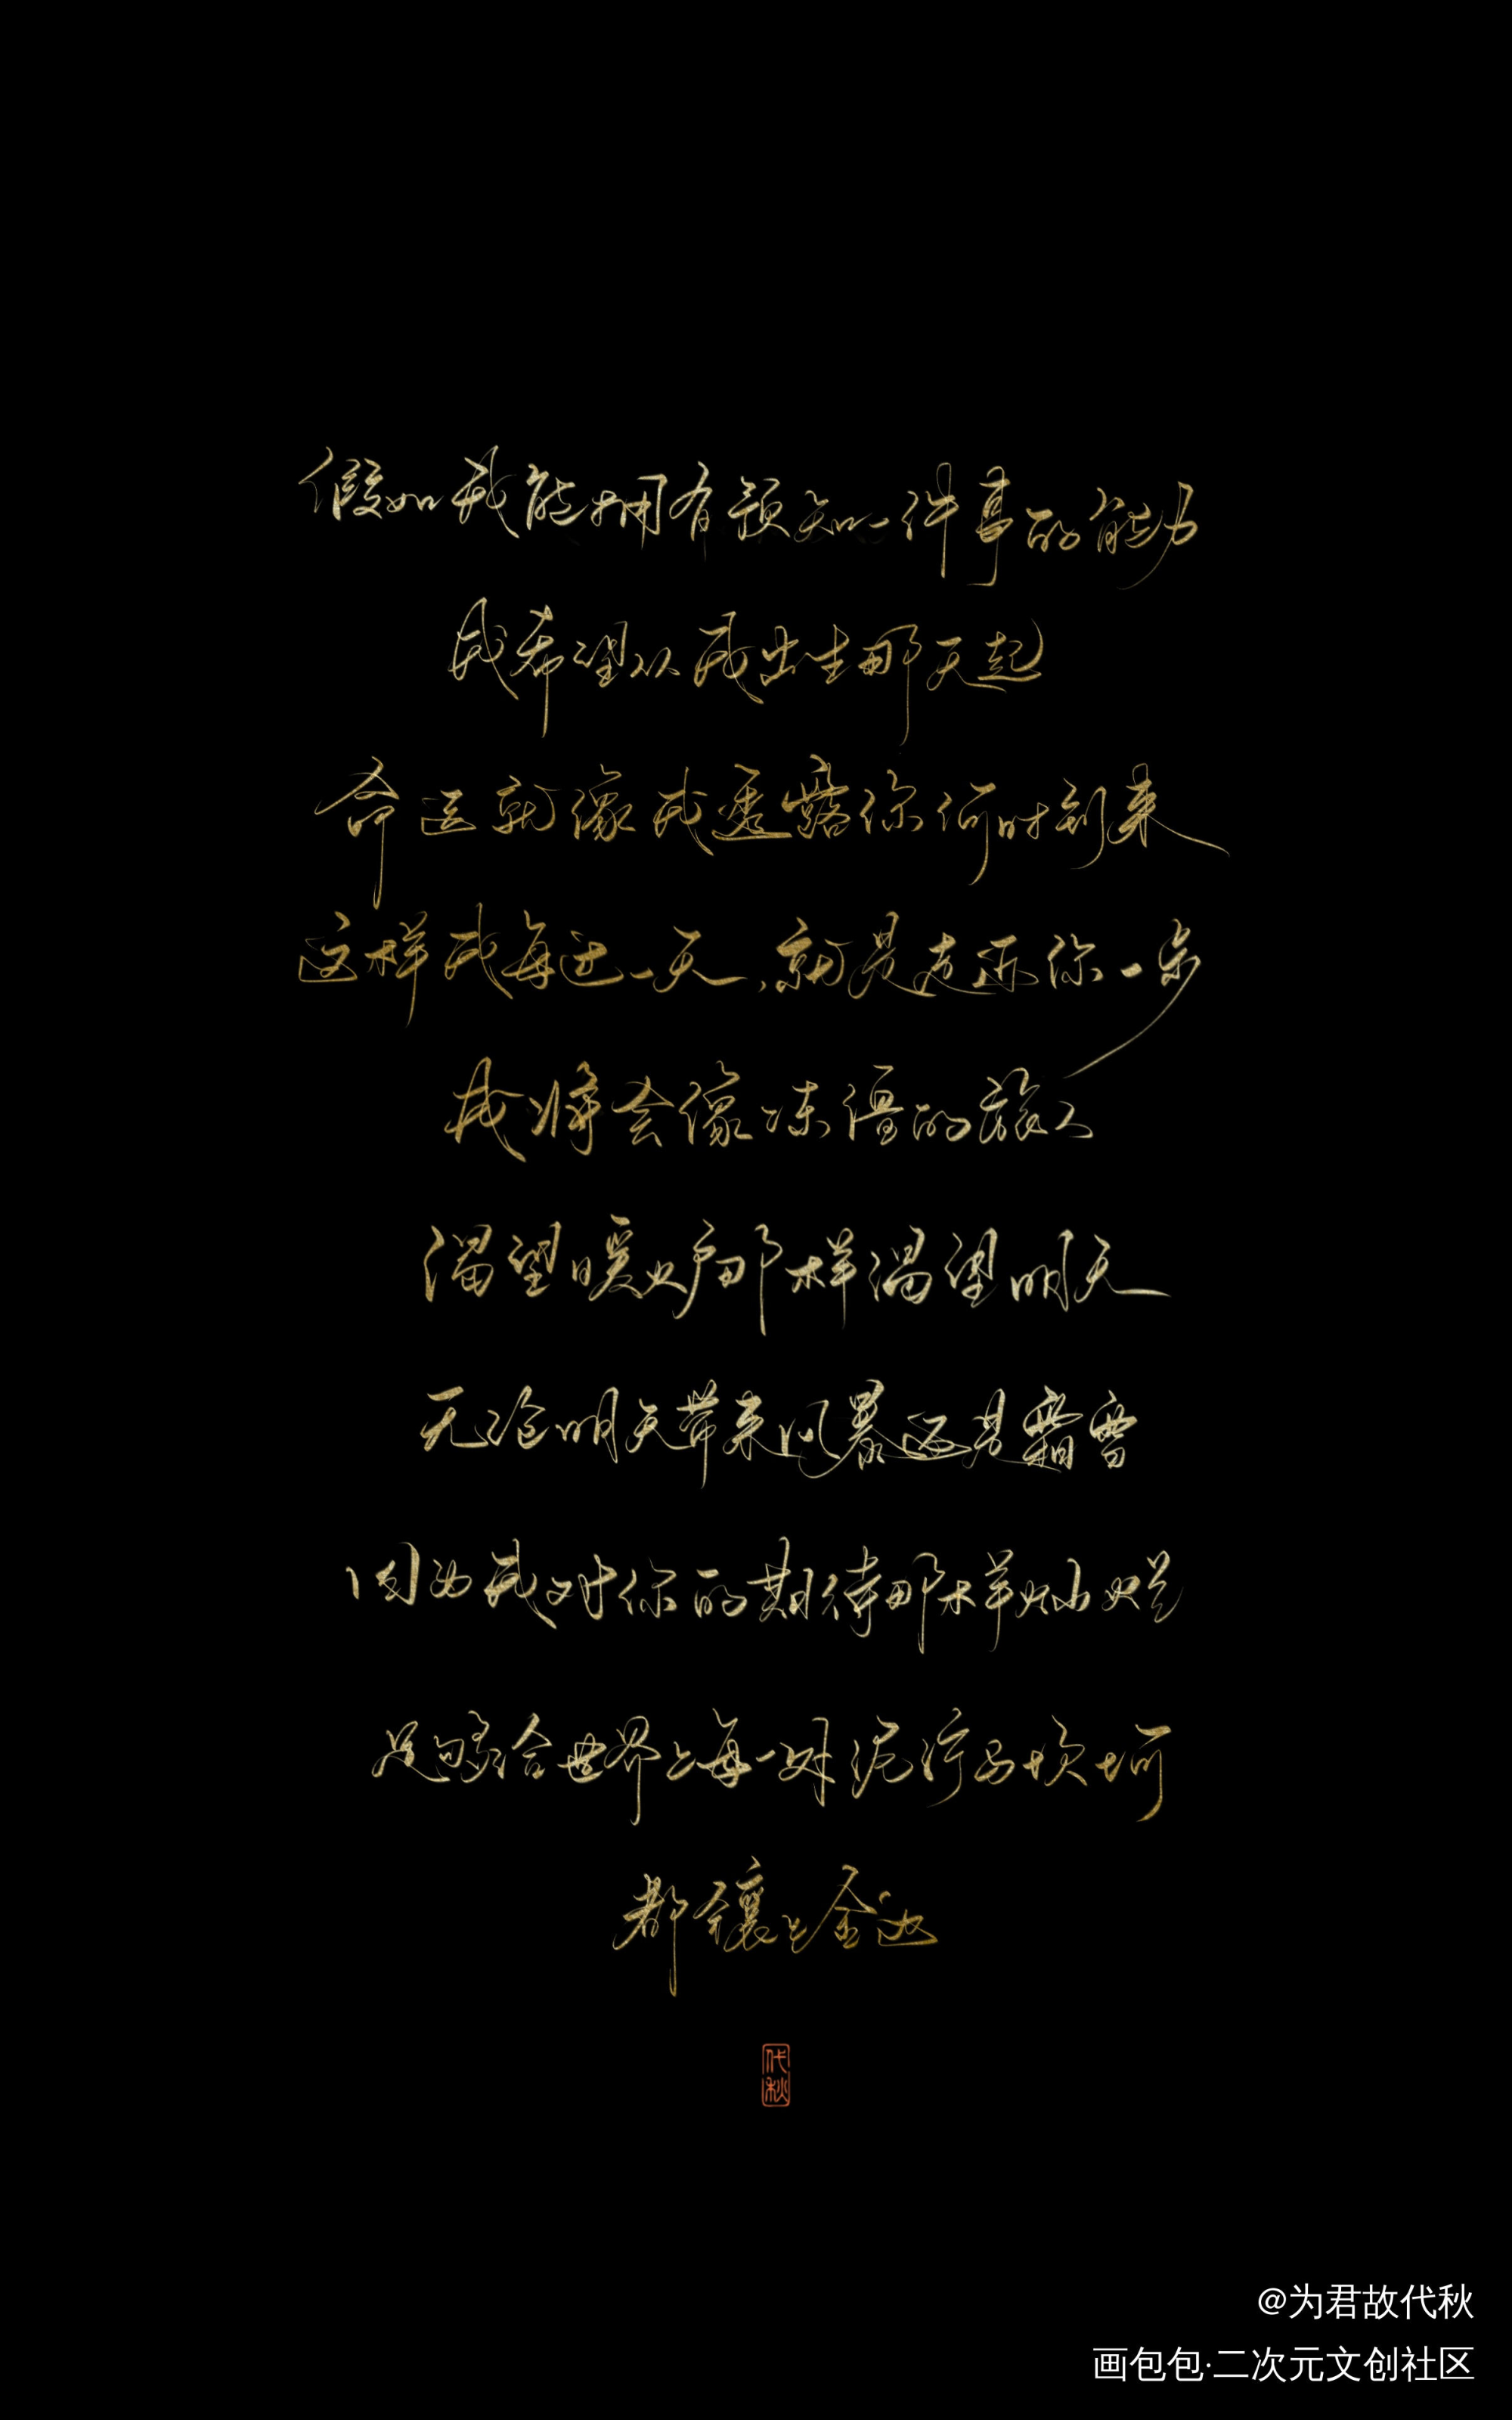 假如我能拥有预知一件事的能力
我希望从我出生那天起
命运就像我透露你何时到来
这样我每过一天，就是走近你一步
我将会像冻僵的旅人
渴望暖炉那样渴望明天
无论明天带来风暴还是霜雪
因为我对你的期待那样灿烂
足够给世界上每一处泥泞与坎坷
都镶上金边
代秋
@为君故代秋
画包包·二次元文创社区